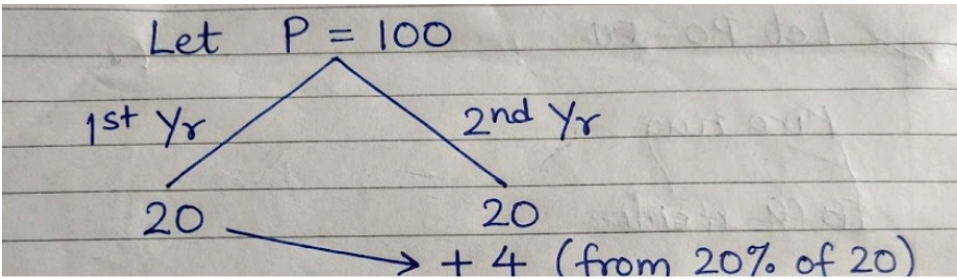 Let P = 100
1st Yr 2nd Yr
20 20
+ 4 (from 20% of 20)